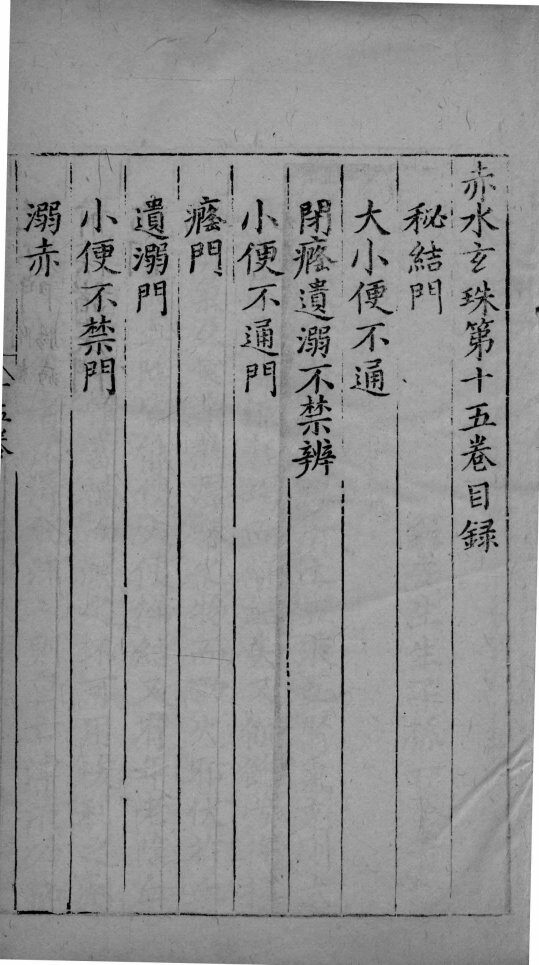 赤水玄珠第十五卷目録
秘結門
大小便不通
閉癃遺溺不禁辨
小便不通門
癃門
遺溺門
小便不禁門
溺赤